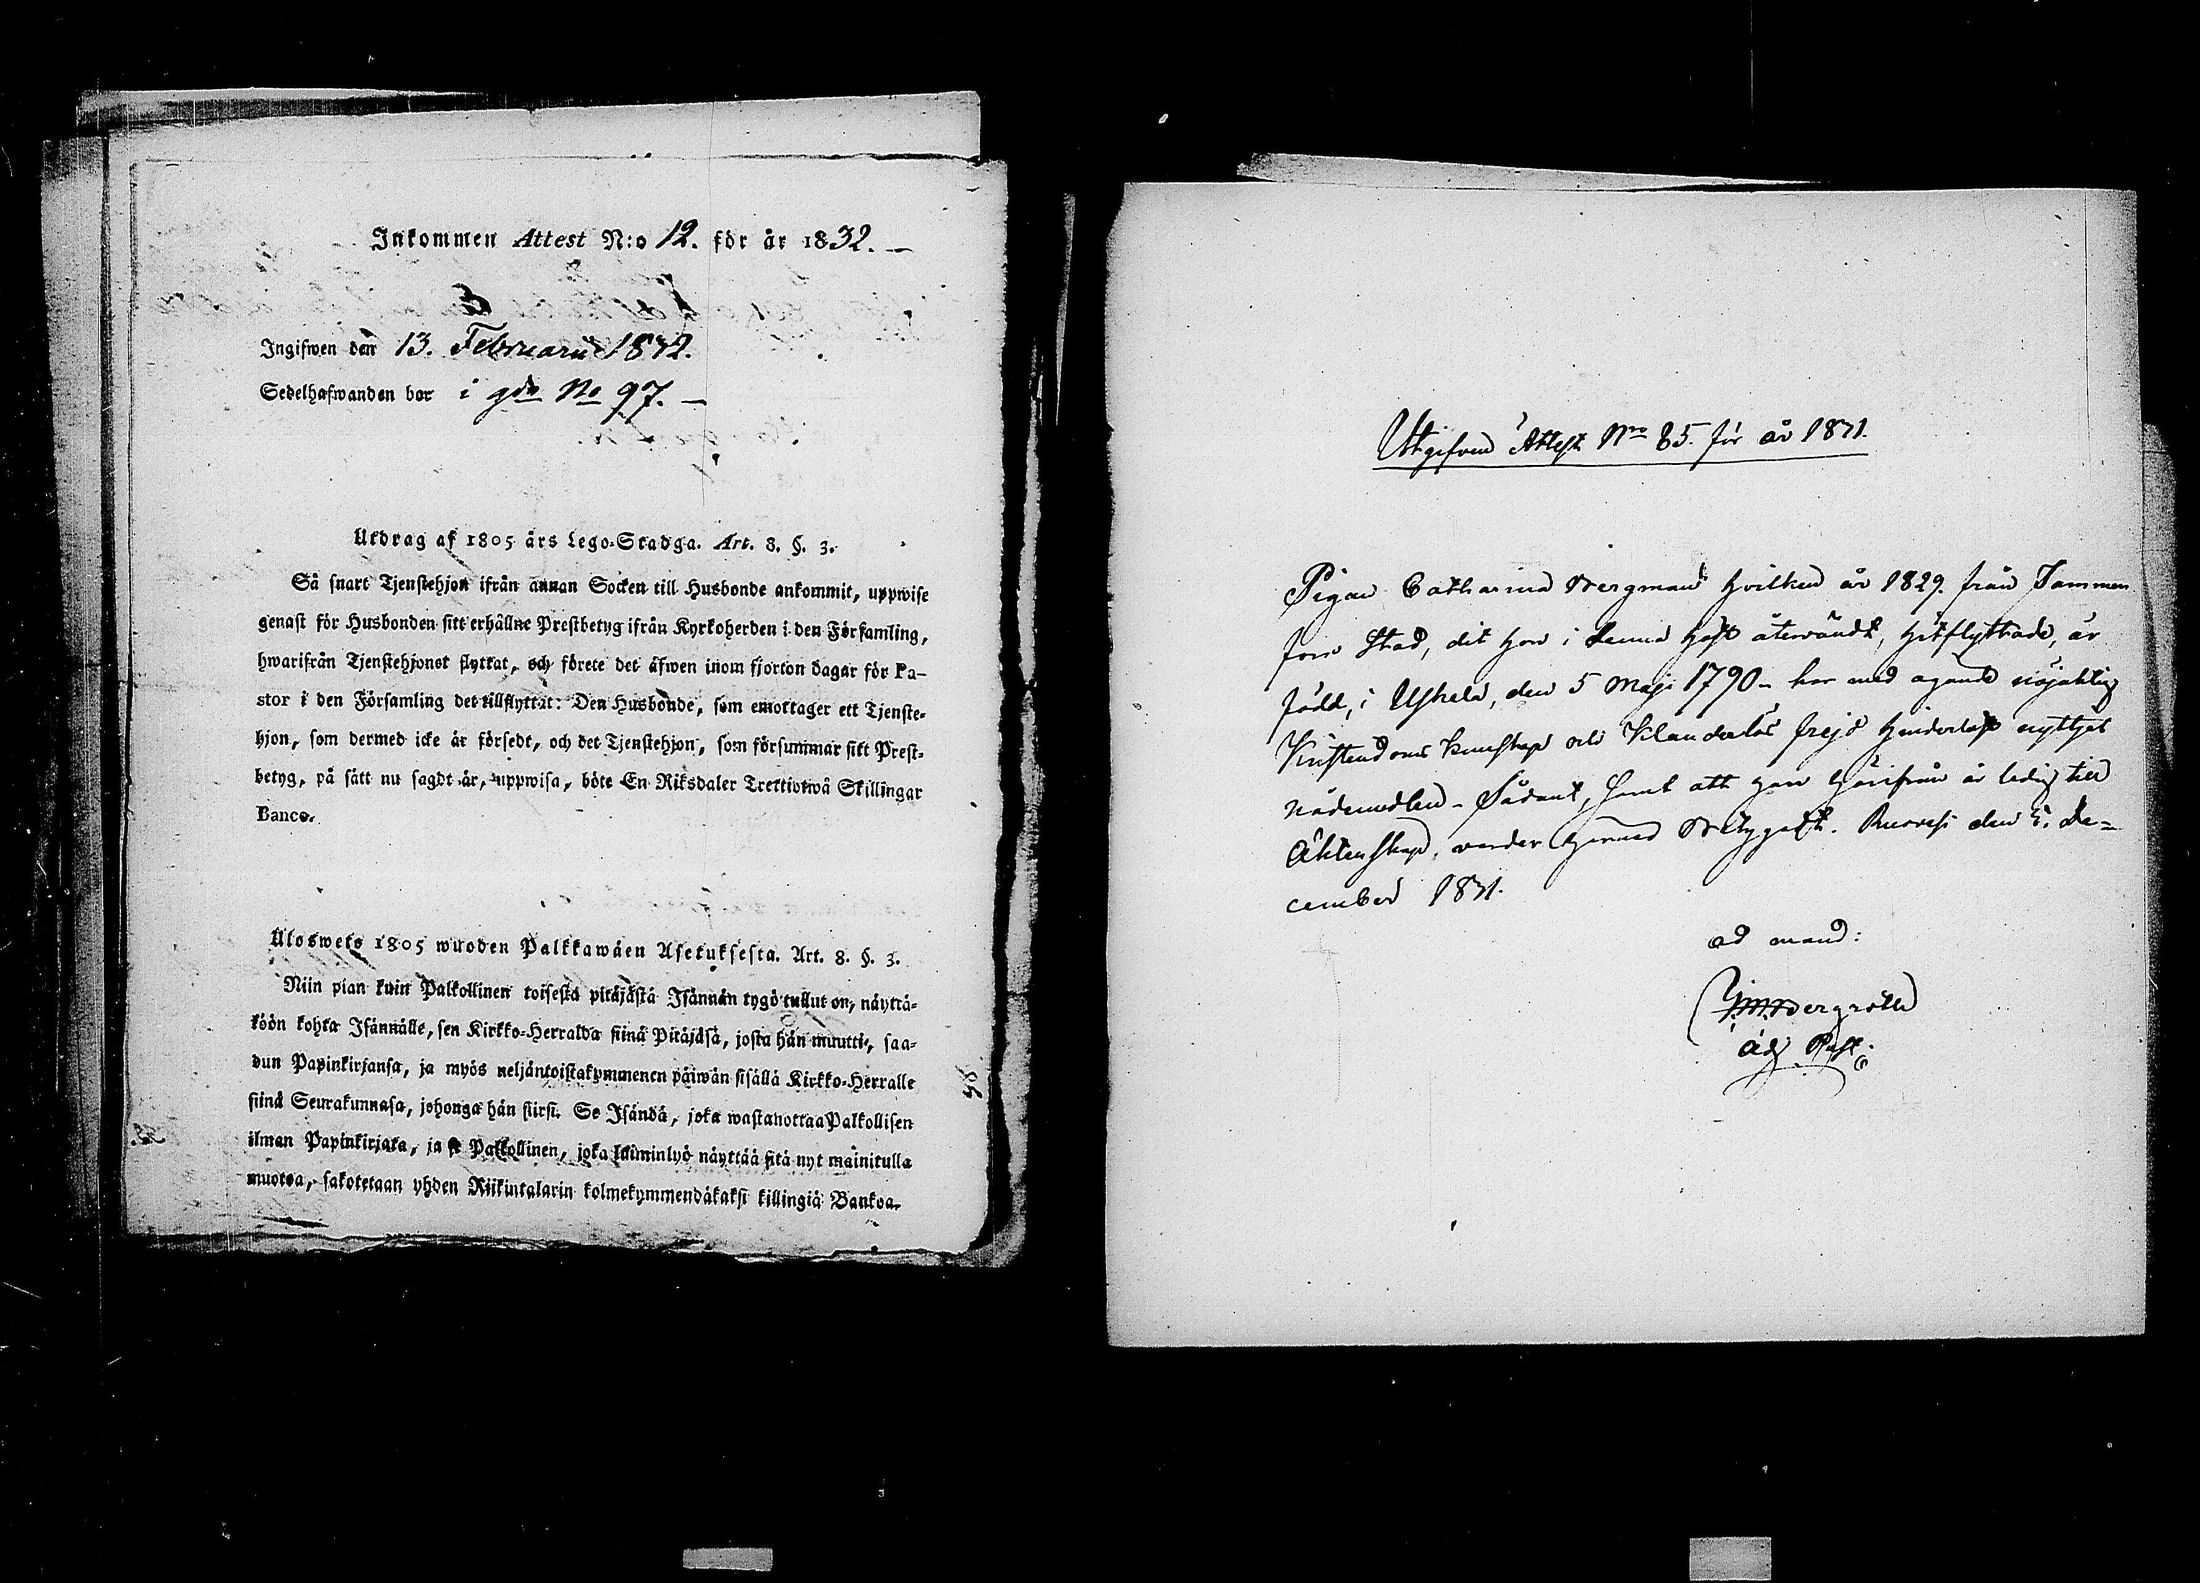 Inkommen Attest N:o 12. för år 1832. —
Ingifwen den 13. Februarii 1832.
Sedelhafwanden bor i gdn No 97. —
Utdrag af 1805 års Lego-Stadga. Art. 8. §. 3.
Så snart Tjenstehjon ifrån annan Socken till Husbonde ankommit, uppwise
genast för Husbonden sitt erhållne Prestbetyg ifrån Kyrkoherden i den Församling,
hwarifrån Tjenstehjonet flyttat, och förete det äfwen inom fjorton dagar för Pa-
stor i den Församling det tillflyttat: Den Husbonde, som emottager ett Tjenste-
hjon, som dermed icke är försedt, och det Tjenstehjon, som försummar sitt Prest-
betyg, på sätt nu sagdt är, uppwisa, böte En Riksdaler Trettiotwå Skillingar
Banco.
Ulosweto 1805 wuoden Palkkawäen Asetuksesta. Art. 8. §. 3.
Niin pian kuin Palkollinen toisesta pitäjästä Isännän tygö tullut on, näyttä-
köön kohta Isännälle, sen Kirkko-Herralda siinä Pitäjäsä, josta hän muutti, saa-
dun Papinkirjansa, ja myös neljäntoistakymmenen päiwän sisällä Kirkko-Herralle
siinä Seurakunnasa, johonga hän siirsi. Se Isändä, joka wastanottaa Palkollisen
ilman Papinkirjata, ja se Palkollinen, joka laiminlyö näyttää sitä nyt mainitulla
muotoa, sakotetaan yhden Riikintalarin kolmekymmendäkaksi killingiä Bankoa.
Utgifven Attest Nro 85. för år 1831.
Pigan Catharina Bergman hvilken år 1829. från Tammer
fors Stad, dit hon i denna höst återvändt, hitflyttade, är
född, i Uskela, den 5 Maji 1790 – har med ägande nöjaktig
Kristendoms kunskap och Klanderlös frejd hinderlöst nyttjat
nådemedlen – Sådant, samt att hon härifrån är ledig till
Äktenskap, varder härmed betygadt. Ruovesi den 5. De=
cember 1831.
ad mand:
Bergroth
Adj. Past.